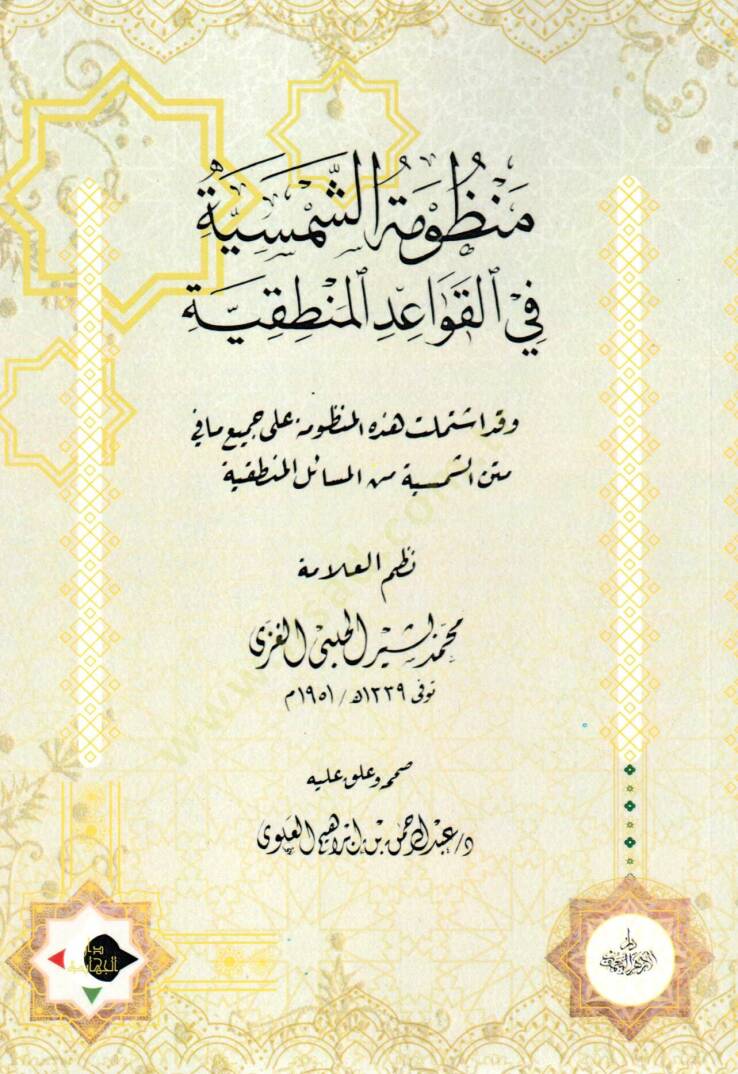 مَنْظُومَةُ الشَّمْسِيَّةِ
فِي الْقَوَاعِدِ الْمَنْطِقِيَّةِ
وقد اشتملت هذه المنظومة على جميع ما في
متن الشمسية من المسائل المنطقية
نظم العلامة
محمد بشير الحلبي الغزي
توفي ١٣٣٩هـ / ١٩٥١م
صححه وعلق عليه
د/عبد الرحمن بن إبراهيم العلوي
دار